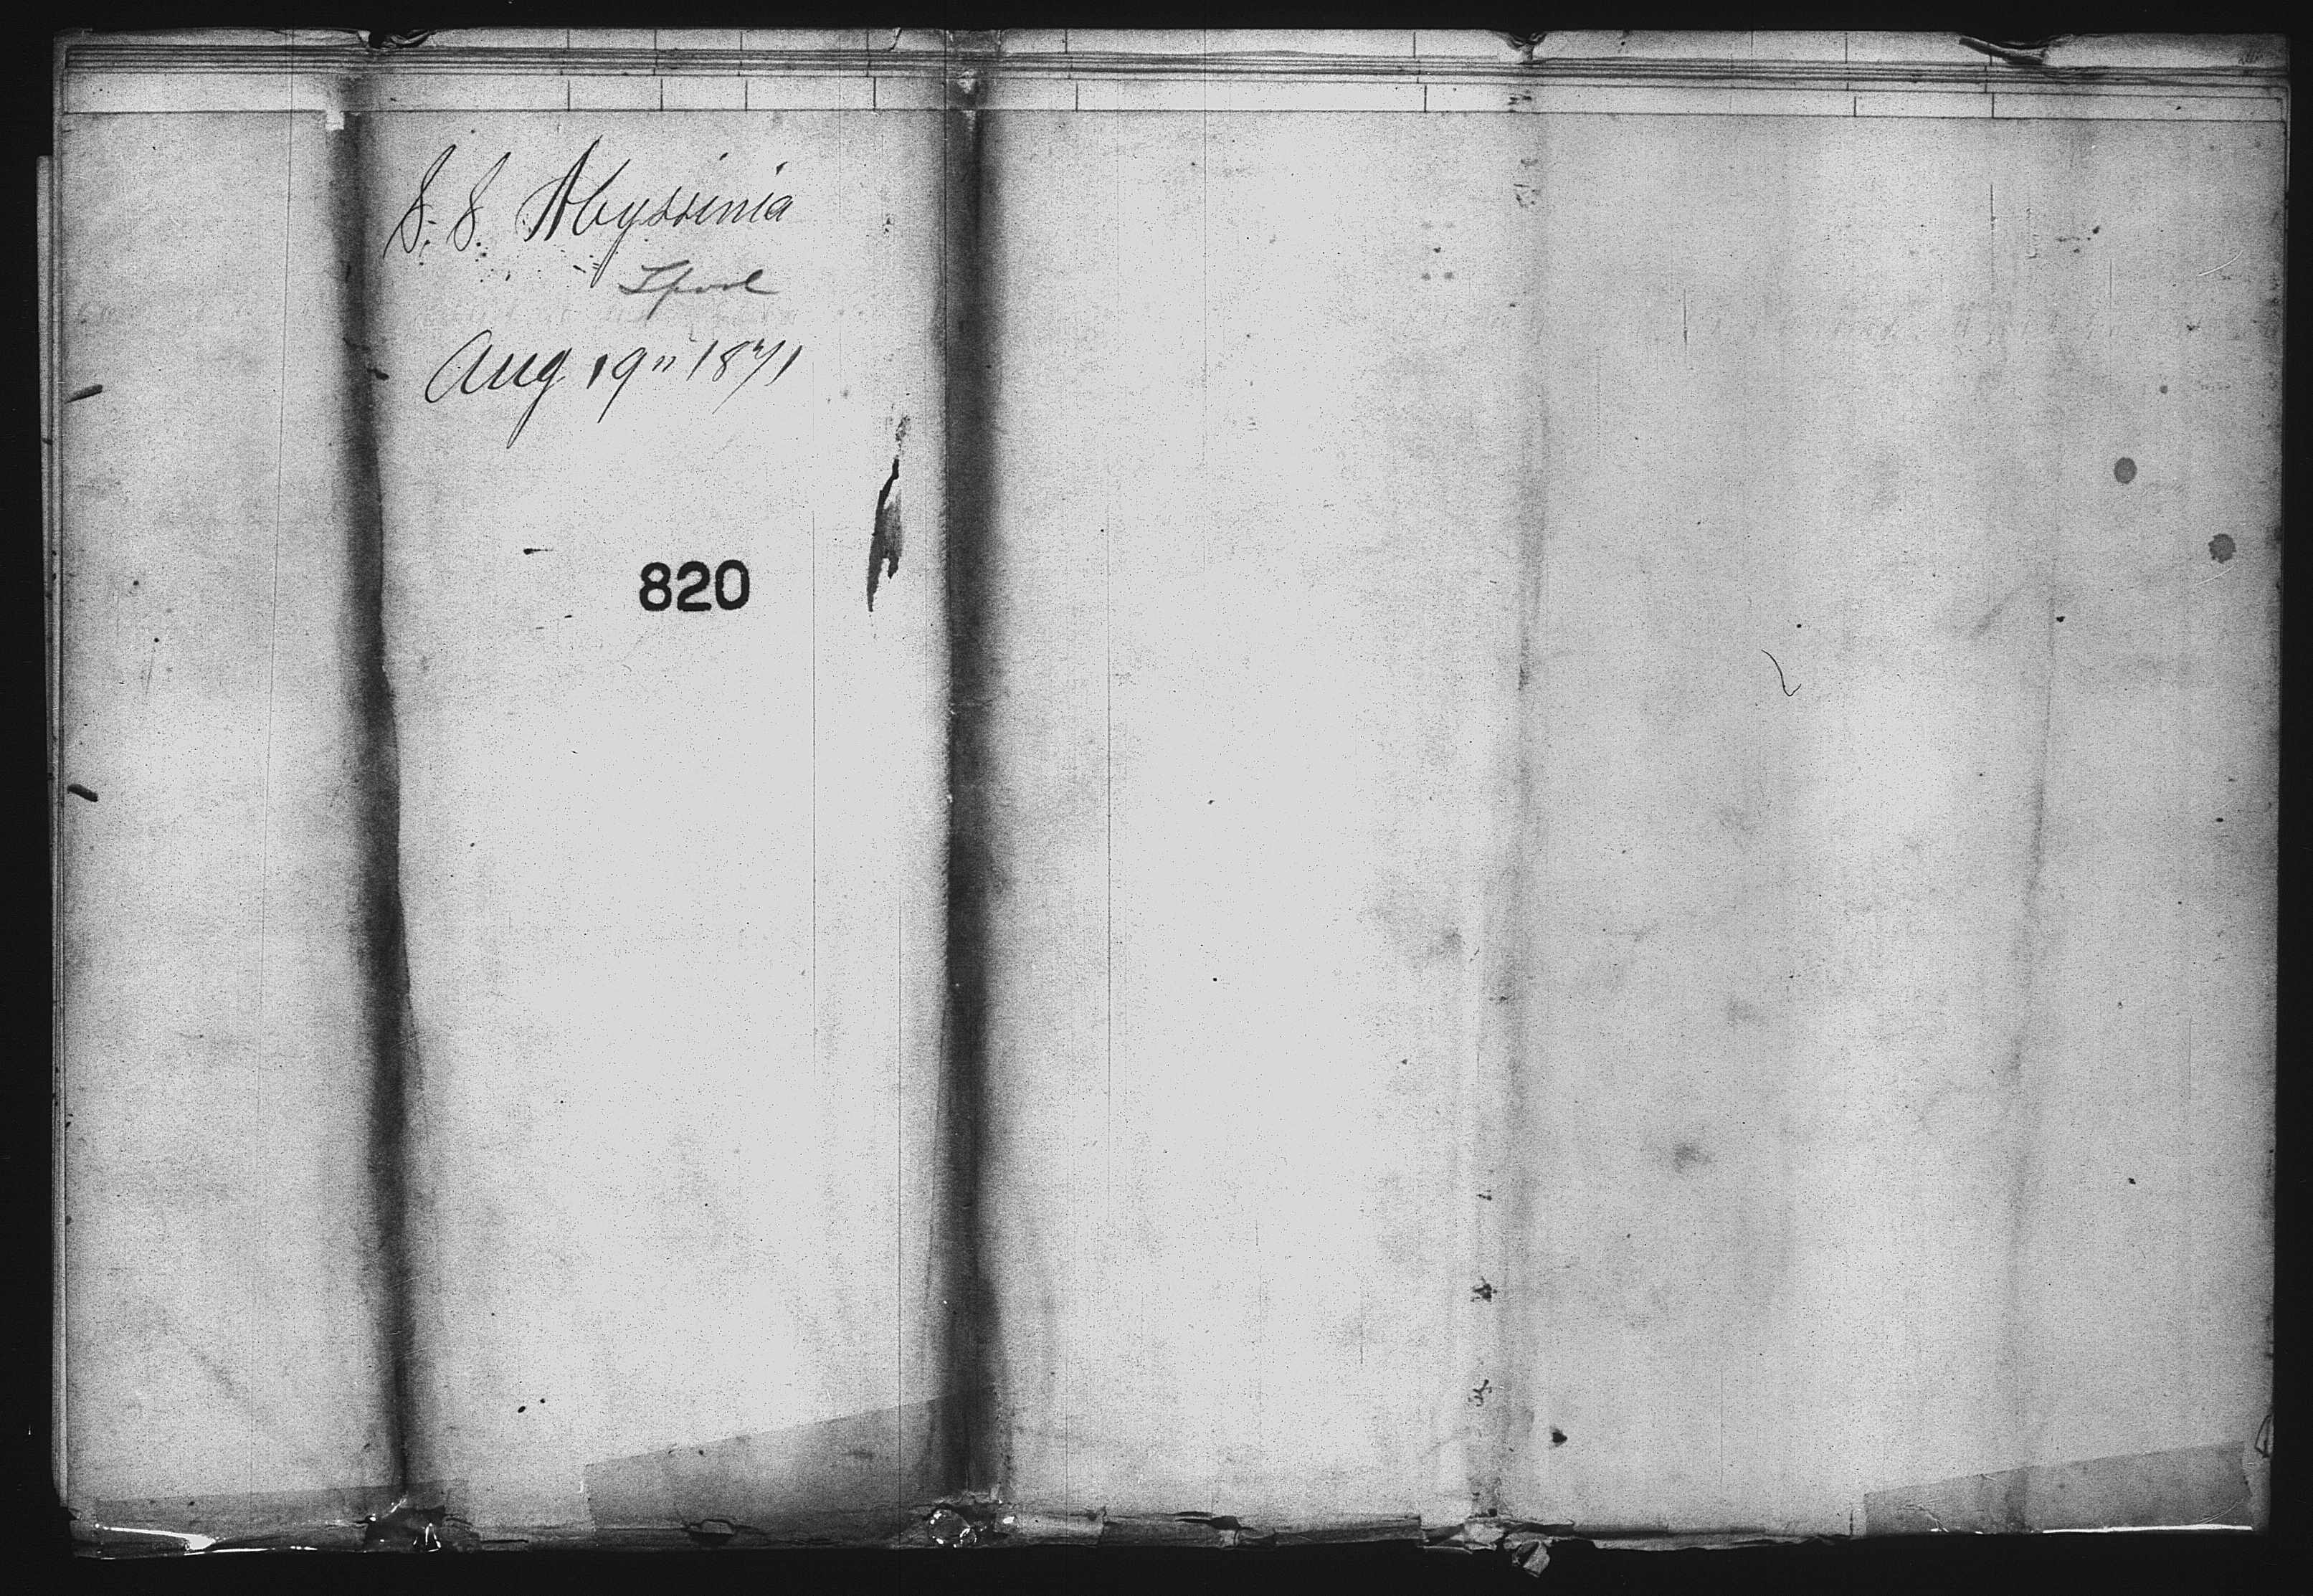 S. S. Abyssinia
Lpool
Aug 19" 1871
820